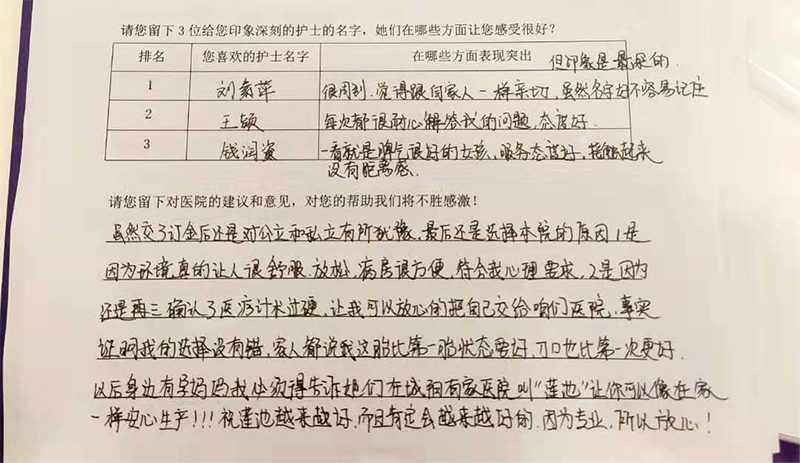 请您留下 3 位给您印象深刻的护士的名字，她们在哪些方面让您感受很好？
排名 您喜欢的护士名字 在哪些方面表现突出 但印象是最深的.
1 刘 萍 很周到.觉得跟自家人一样亲切,虽然名字好不容易记住
2 王颖 每次都很耐心解答我的问题,态度好.
3 钱润资 一看就是脾气很好的女孩,服务态度好,接触起来
没有距离感.
请您留下对医院的建议和意见，对您的帮助我们将不胜感激！
虽然交了订金后还是对公立和私立有所犹豫,最后还是选择本院的原因1是
因为环境真的让人很舒服.放松,病房很方便,符合我心理要求,2是因为
还是再三确认了医疗计术过硬,让我可以放心的把自己交给咱们医院,事实
证明我的选择没有错,家人都说我这胎比第一胎状态要好,刀口也比第一次更好.
以后身边有孕妈妈我必须得告诉她们在城阳有家医院叫“莲池”让你可以像在家
一样安心生产!!!祝莲池越来越好.而且肯定会越来越好的.因为专业,所以放心!